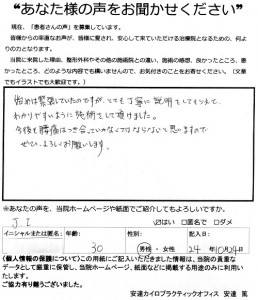 “あなた様の声をお聞かせください”
現在、「患者さんの声」を募集しています。
皆様からの率直なお声が、皆様に愛され、安心して来ていただける治療院となるための、何よ
りの力となります。
当院に来院した理由、整形外科やその他の施術院との違い、施術の感想、良かったところ、悪
かったところ、どのような内容でも構いませんので、お気付きのことをお書きください。(文章
でもイラストでも大歓迎です。)
始めは緊張していたのですが、とても丁寧に説明をしてもらえて、
わかりやすいように施術をして頂きました。
今後も腰痛はつき合っていかなくてはならないと思いますので
ぜひ、よろしくお願いします。
※あなたの声を、当院ホームページや紙面でご紹介してもよろしいですか。
□はい □匿名で □ダメ
J.I
イニシャルまたは匿名: 年齢: 性別: 記入日:
30 男性・女性 24年10月24日
(個人情報の保護について)この用紙にご記入いただきました情報は、当院の貴重な
データとして厳重に保管し、当院ホームページ、紙面などに掲載する用途のみに利用い
たします。
ご協力有り難うございました。
安達カイロプラクティックオフィス 安達 篤